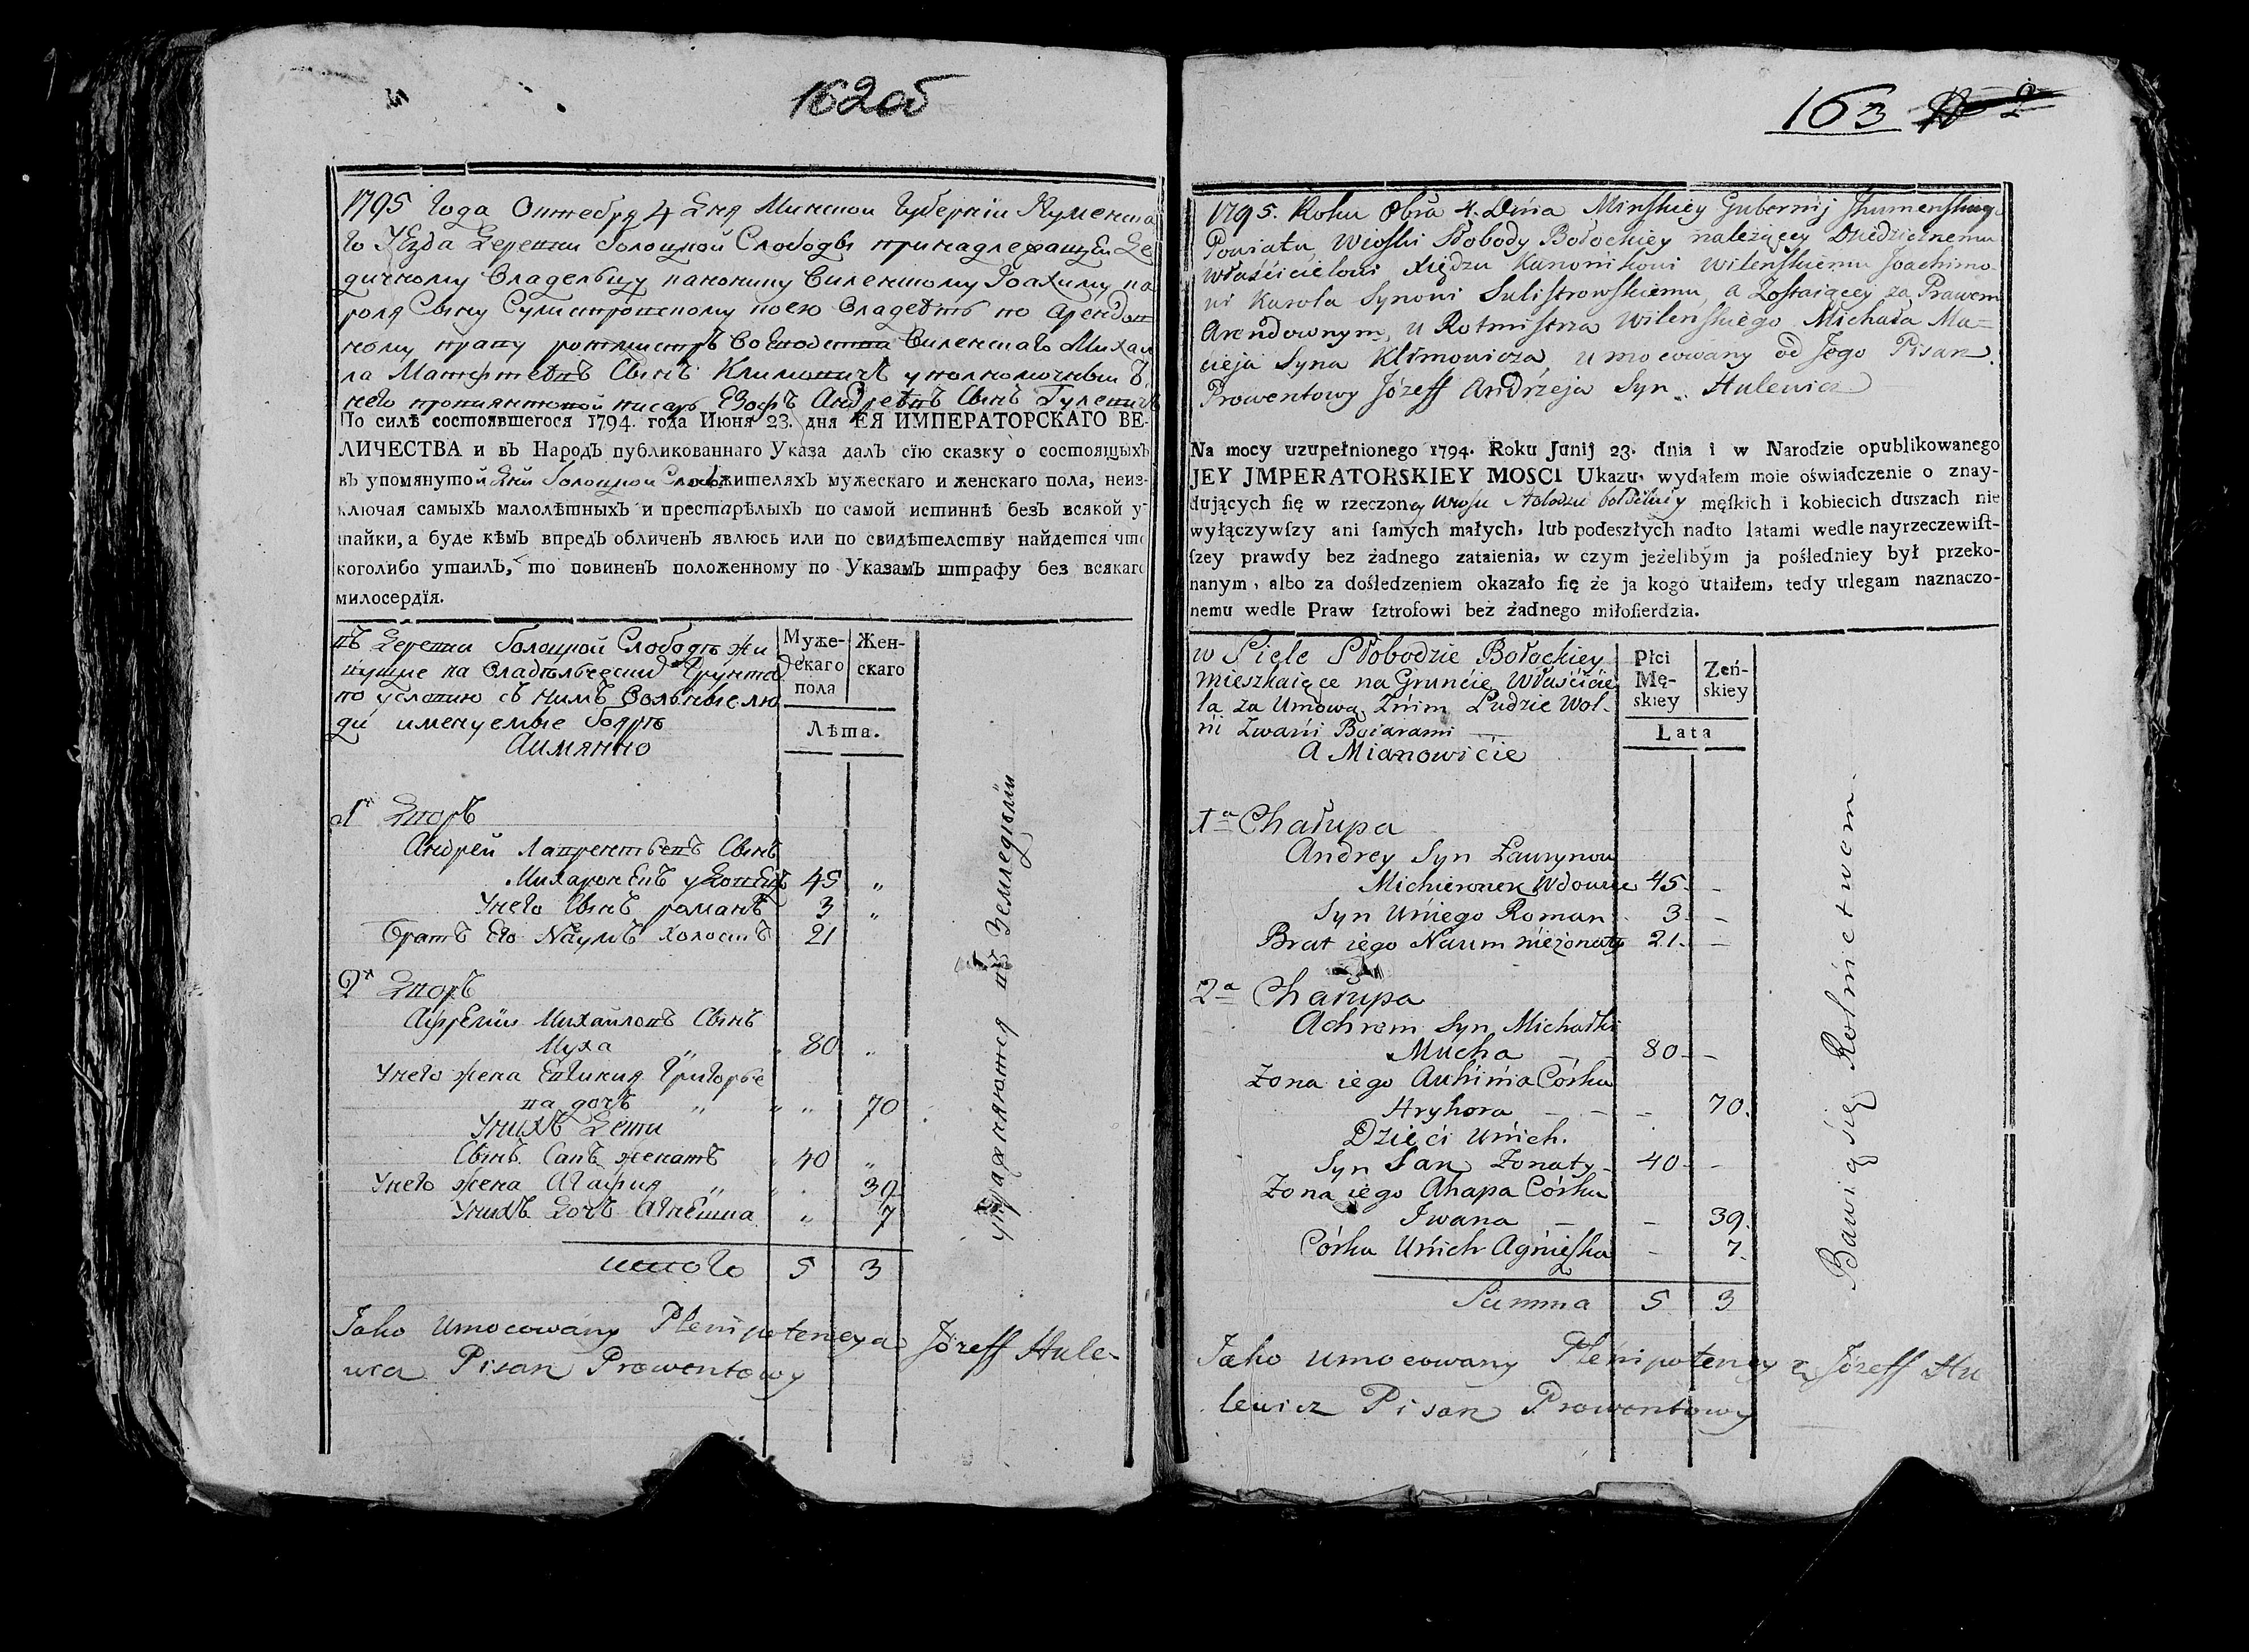 162 об
1795 года Октебря 4 дня Минской Губернии Игуменска
го Уезда деревни Болоцкой Слободы принадлежащей де
дичному владельцу канонику Виленскому Іоахиму ка
роля Сыну Сулистровскому коею владеетъ по арендов
ному праву ротмистръ Воеводства Виленскаго Михаи
ла Матертевъ Сынъ Климовичъ уполномочный Ѿ
него провиантовой писарь Езофъ Андреевъ Сынъ Гулевичъ
По силѣ состоявшегося 1794. года Июня 23. дня ЕЯ ИМПЕРАТОРСКАГО ВЕ-
ЛИЧЕСТВА и въ Народъ публикованнаго Указа далъ сїю сказку о состоящыхъ
въ упомянутой дни Болоцкой Слоб. жителяхъ мужескаго и женскаго пола, неиз-
ключая самыхъ малолѣтныхъ и престарѣлыхъ по самой истиннѣ безъ всякой у-
тайки, а буде кѣмъ впредъ обличенъ явлюсь или по свидѣтелству найдется что
коголибо утаилъ, то повиненъ положенному по Указамъ штрафу без всякаго
милосердїя.
въ деревни Болоцкой Слободъ жи
вущие на владѣльческий Грунтѣ
по условию съ нимъ Вольные лю
ди именуемые бояре
Аимянно
Муже-
скаго
пола
Жен-
скаго
Лѣта.
1й дворъ
Андрей Лаврентьевъ Сынъ
Михаронекъ удовецъ 45 „
Унего Сынъ романъ 3 „
братъ его Наумъ холостъ 21
2й дворъ
Афремъ Михайловъ Сынъ
Муха „ 80 „
Унего жена Евгиния Григорье
ва дочъ „ „ „ 70
Унихъ дети
Сынъ Санъ женатъ „ 40 „
Унего жена Агафия „ „ 39
Унихъ дочъ Агнешка „ 7
итого 5 3
упражняются въ Земледелїи
Jako Umocowany Plenipotencya Józeff Hule-
wicz Pisarz Prowentowy
163
1795. Roku 8bra 4. Dnia Minskiey Gubernij Jhumenskiego
Powiatu, Wioski Słobody Bołockiey należącey Dziedzicznemu
Właścicielowi Xiędzu Kanonikowi Wilenskiemu Joachimo-
wi Karola Synowi Sulistrowskiemu, a Zostaiącey za Prawem
Arendownym, u Rotmistrza Wilenskiego Michała Ma=
cieja Syna Klimowicza umocowany od Jego Pisarz
Prowentowy Józeff Andrzeja Syn. Hulewicz
Na mocy uzupełnionego 1794. Roku Junij 23. dnia i w Narodzie opublikowanego
JEY JMPERATORSKIEY MOSCI Ukazu, wydałem moie oświadczenie o znay-
dujących ſię w rzeczoney Wiosce Słobodzie bołockiey męſkich i kobiecich duszach nie
wyłączywſzy ani ſamych małych, lub podeszłych nadto latami wedle nayrzeczewiſt-
ſzey prawdy bez żadnego zataienia, w czym jeżelibym ja poſledniey był przeko-
nanym, albo za doſledzeniem okazało ſię że ja kogo utaiłem, tedy ulegam naznaczo-
nemu wedle Praw ſztrofowi bez żadnego miłoſierdzia.
w Siele Słobodzie Bołockiey
Mieszkaiące na Gruncie Właścicie
la za Umową Znim Ludzie Wol-
ni Zwani Boiarami
A Mianowicie
Płci
Mę-
skiey
Żeń-
skiey
Lata
1a Chałupa
Andrey Syn Ławrynow
Michieronek Wdowiec 45. -
Syn Uniego Roman 3. -
Brat iego Naum nieżonaty 21. -
2a Chałupa
Achrem Syn Michałki
Mucha - - 80 - -
Zona iego Auhinia Córka
Hryhora - - - 70.
Dzieci Unich.
Syn San Zonaty - 40 - -
Zona iego Ahapa Córka
Iwana - - 39.
Córka Unich Agnieszka - 7.
Summa 5 3
Bawią się Rolnictwem
Jako Umocowany Plenipotencyą Józeff Hu
lewicz Pisarz Prowentowy